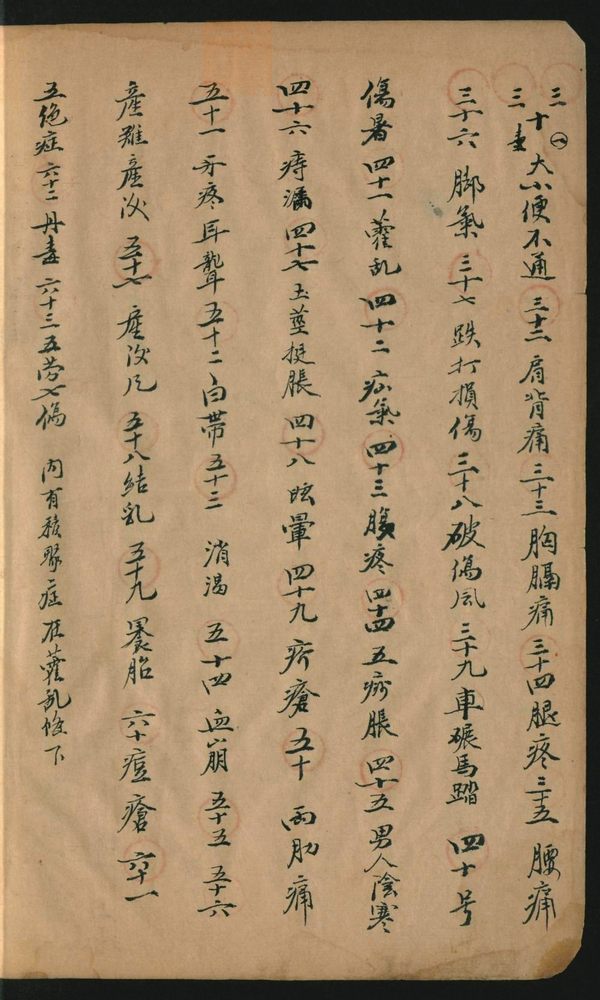 三十一 大小便不通 三十二 肩背痛 三十三 胸膈痛 三十四 腿疼 三十五 腰痛
三十六 脚氣 三十七 跌打損傷 三十八 破傷風 三十九 車碾馬踏 四十号
傷暑 四十一 藿乱 四十二 疝氣 四十三 腹疼 四十四 五膨脹 四十五 男人陰寒
四十六 痔漏 四十七 玉莖挺脹 四十八 眩暈 四十九 疥瘡 五十 两肋痛
五十一 牙疼耳聾 五十二 白带 五十三 消渴 五十四 血崩 五十五 五十六
產难產後 五十七 產後風 五十八 結乳 五十九 胎 六十 痘瘡 六十一
五绝症 六十二 丹毒 六十三 五劳七傷 内有積聚症在藿乱條下